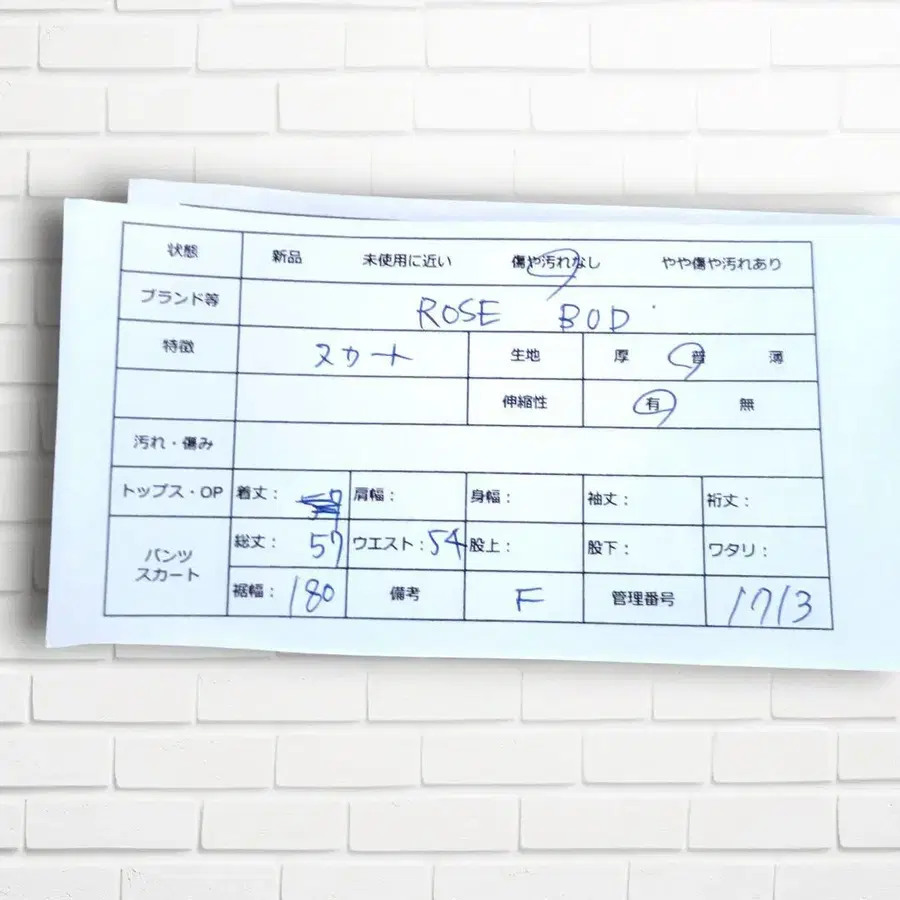 状態 新品 未使用に近い 傷や汚れなし やや傷や汚れあり
ブランド等 ROSE BOD
特徴 スカート 生地 厚 普 薄
伸縮性 有 無
汚れ・傷み
トップス・OP 着丈： 肩幅： 身幅： 袖丈： 裄丈：
パンツ スカート 総丈： 57 ウエスト：54 股上： 股下： ワタリ：
裾幅： 180 備考 F 管理番号 1713